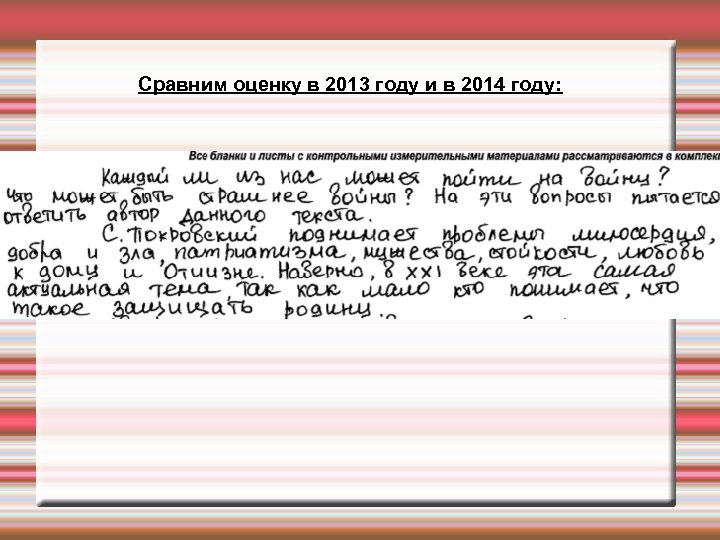 Сравним оценку в 2013 году и в 2014 году:
Все бланки и листы с контрольными измерительными материалами рассматриваются в комплек
Каждой ли из нас может пойти на войну?
Что может быть страшнее войны? На эти вопросы пытается
ответить автор данного текста.
С. Покровский поднимает проблемы милосердия,
добра и зла, патриатизма, мущества, стойкости, любовь
к дому и Отчизне. Наверно, в XXI веке эта самая
актуальная тема, так как мало кто понимает, что
такое защищать родину.